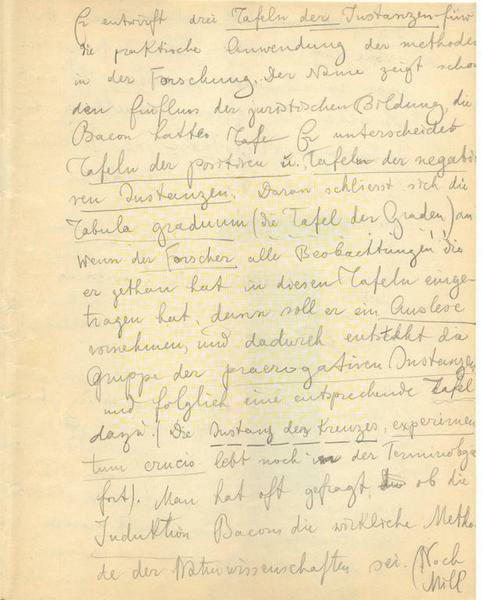 Er entwirft drei Tafeln der Instanzen für
die praktische Anwendung der Methoden
in der Forschung. Der Name zeigt schon
den Einfluss der juristischen Bildung, die
Bacon hatte. Tafe Er unterscheidet
Tafeln der positiven u. Tafeln der negati
ven Instanzen. Daran schliesst sich die
Tabula graduum (die Tafel der Graden) an
Wenn der Forscher alle Beobachtungen die
er gethan hat in diesen Tafeln einge-
tragen hat, dann soll er ein Auslese
vornehmen, und dadurch entsteht die
Gruppe der praerogativen Instanzen
und folglich eine entsprechende Tafel
dazu! (Die Instanz des Kreuzes, experimen
tum crucis lebt noch in der Terminologie
fort). Man hat oft gefragt, ob die
Induktion Bacons die wirkliche Metho
de der Naturwissenschaften sei. (Noch
Mill